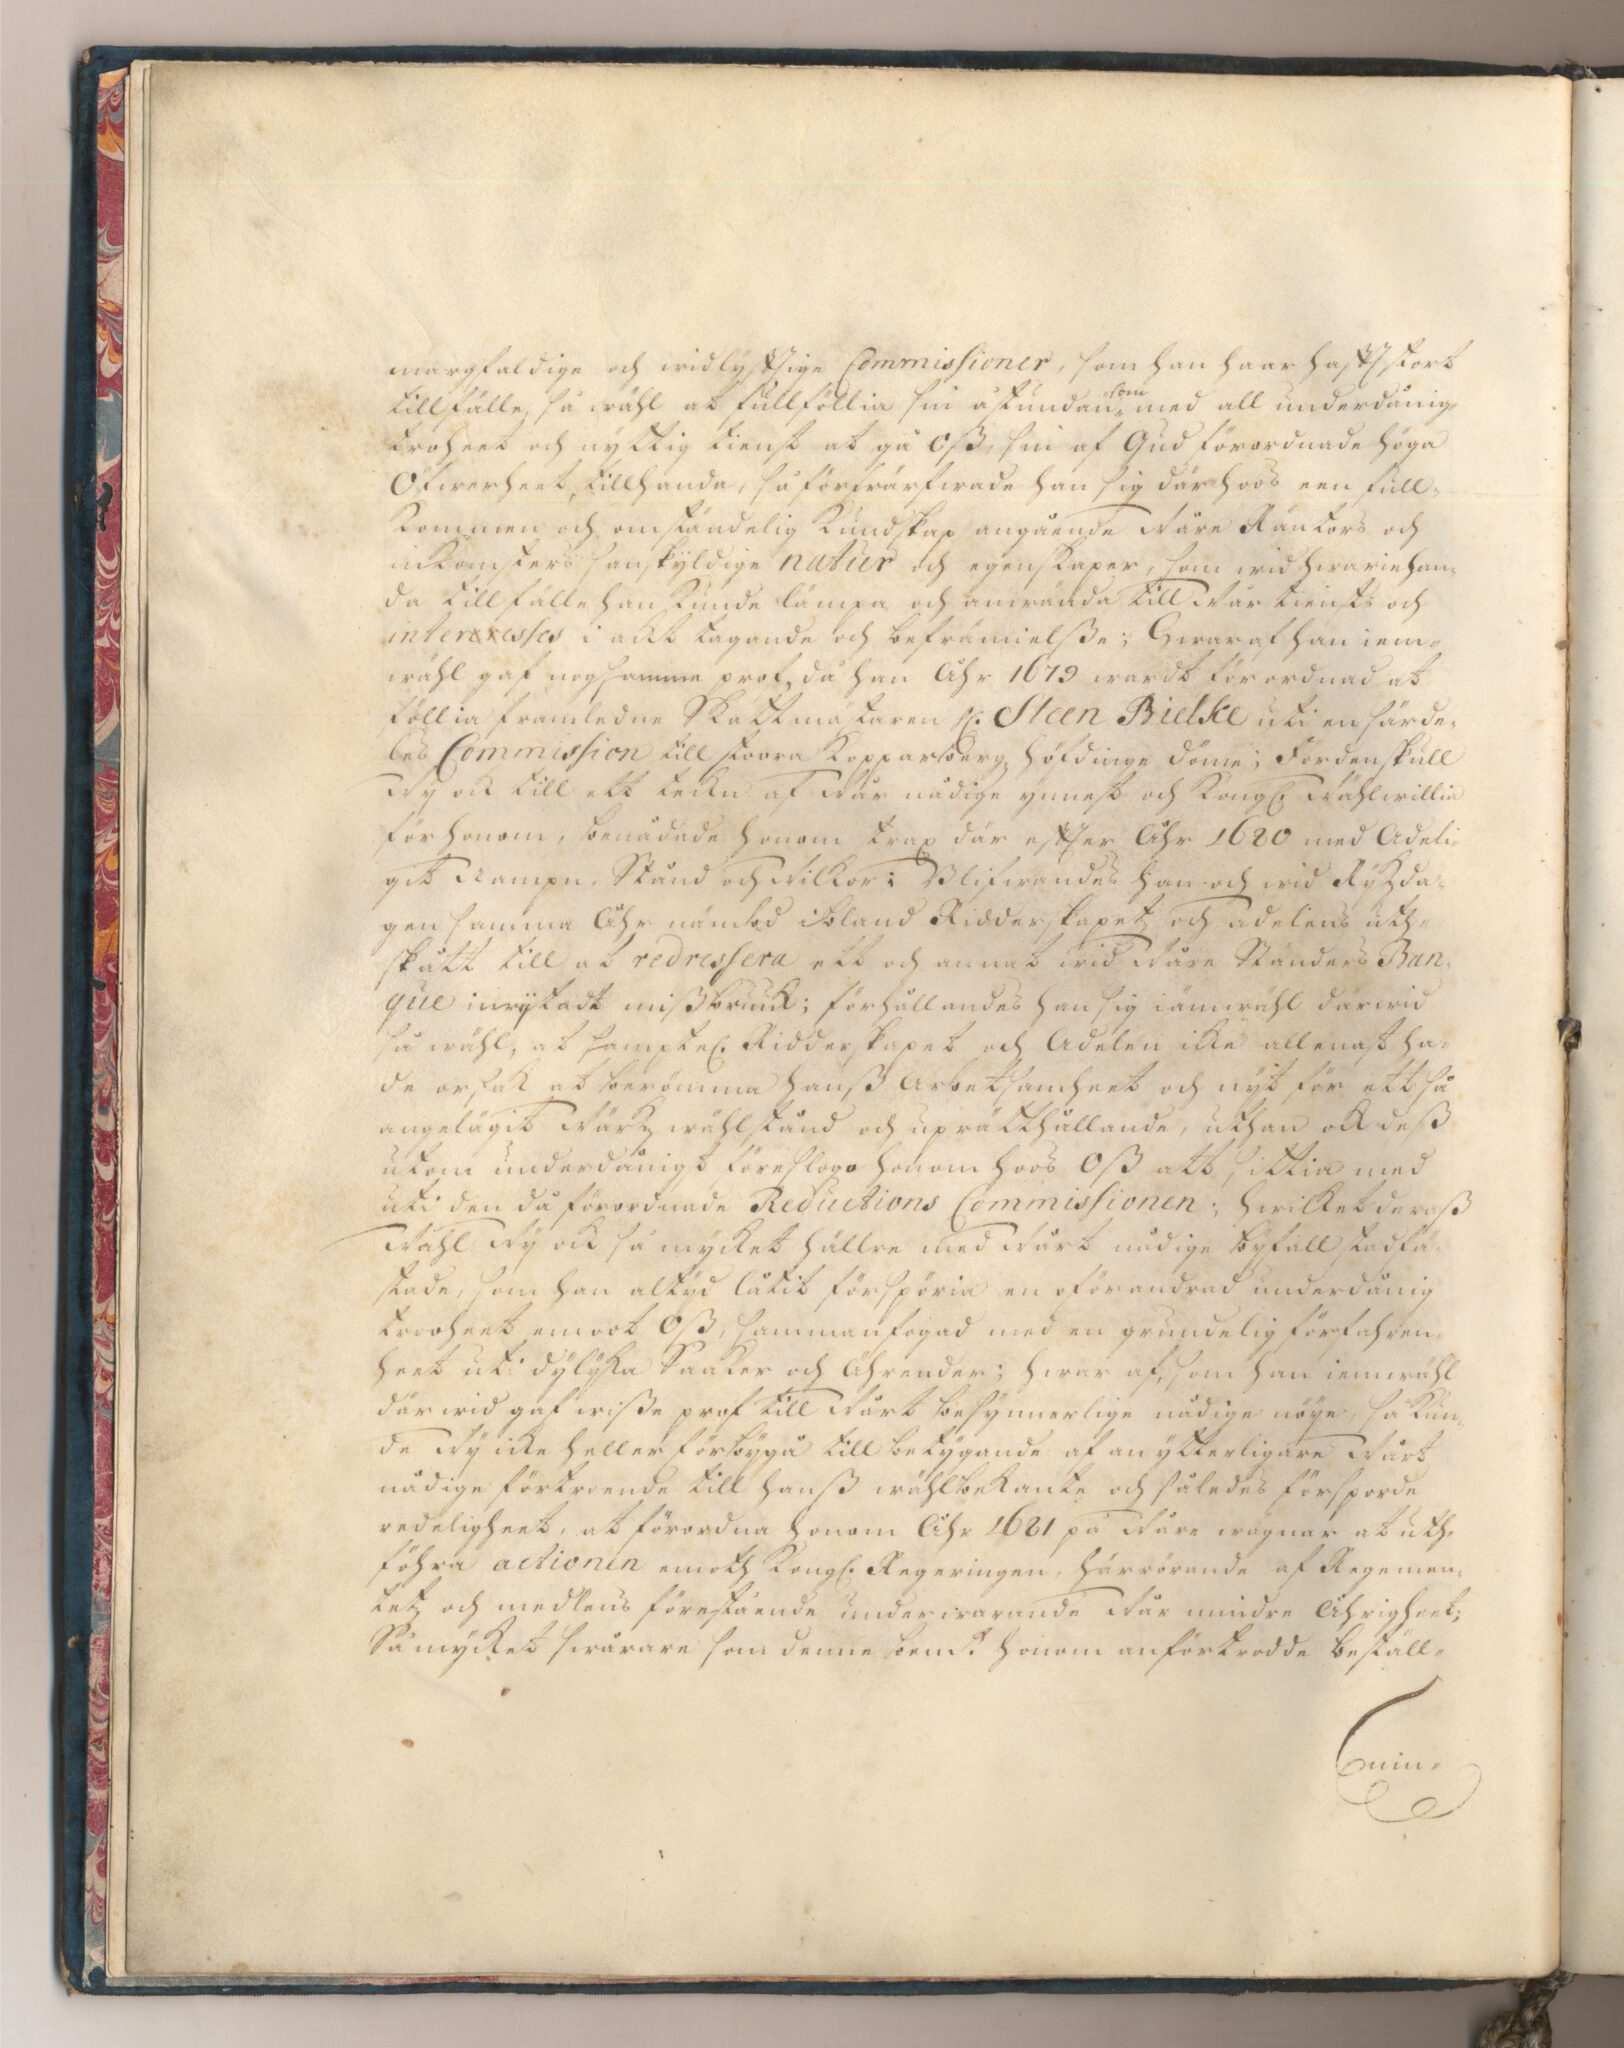 margfaldige och widlyfftige Commissioner, som han haar hafft stort
tillfälle, så wähl at fullföllia sin åstundan, som med all underdånig
troheet och nyttig tienst at gå Oß, sin af Gud förordnade höga
Öfwerheet, tillhanda, så förwärfwade han sig där hoos een full-
kommen och omständelig kundskap angående Wåre Räntors och
inkomsters sanskyldige natur och egenskaper, som wid hwariehan-
da tillfälle han kunde lämpa och anwända till Wår tiensts och
interesses i ackt tagande och befrämielße; Hwaraf han iem-
wähl gaf nogsamme prof, då han Åhr 1679 wardt förordnad at
föllia framledne Skattmästaren H. Steen Bielke uti en särde-
les Commission till stoora Kopparberg, höfdinge döme; Fördenskull
Wy ock till ett teckn af Wår nådige ynnest och Kongl. Wählwillia
för honom, benådade honom strax där effter Åhr 1680 med Adeli-
git Nampn, Stånd och Wilkor; Blifwandes han och wid Ryksda-
gen samma Åhr nämbd ibland Ridderskapet och adelens uth-
skått till at redressera ett och annat wid Wåre Ständers Ban-
que inrystadt mißbruuk; förhållandes han sig iämwähl därwid
så wähl, at samptel. Ridderskapet och Adelen icke allenast ha-
de orsak at berömma hanß Arbetsamheet och nyt för ett så
angelägit Wärkz wählstånd och uprätthållande, uthan ock deß
utom underdånigt föreslogo honom hoos Oß att sittia med
uti den då förordnade Reductions Commissionen; hwilket deraß
Wahl Wy ock så mycket hällre med Wårt nådige byfall stadfä-
stade, som han altyd låtit förspöria en oförandrad underdånig
trooheet emoot Oß, sammanfogad med en grundelig förfahren-
heet uti dylyka Saaker och Ährender; hwar af, som han iemwähl
där wid gaf wiße prof till Wårt besynnerlige nådige nöye, så kun-
de Wy icke heller förbygå till betygande af an ytterligare Wårt
nådige förtroende till hanß wählbekante och således försporde
redeligheet, at förordna honom Åhr 1681 på Wåre wägnar at uth-
föhra actionen emoth Kongl. Regeringen, härrörande af Regemen-
tetz och medlens förestående under warande Wår mindre Åhrigheet;
Så mycket swårare som denne bemt. honom anförtrodde beställ-
nin-